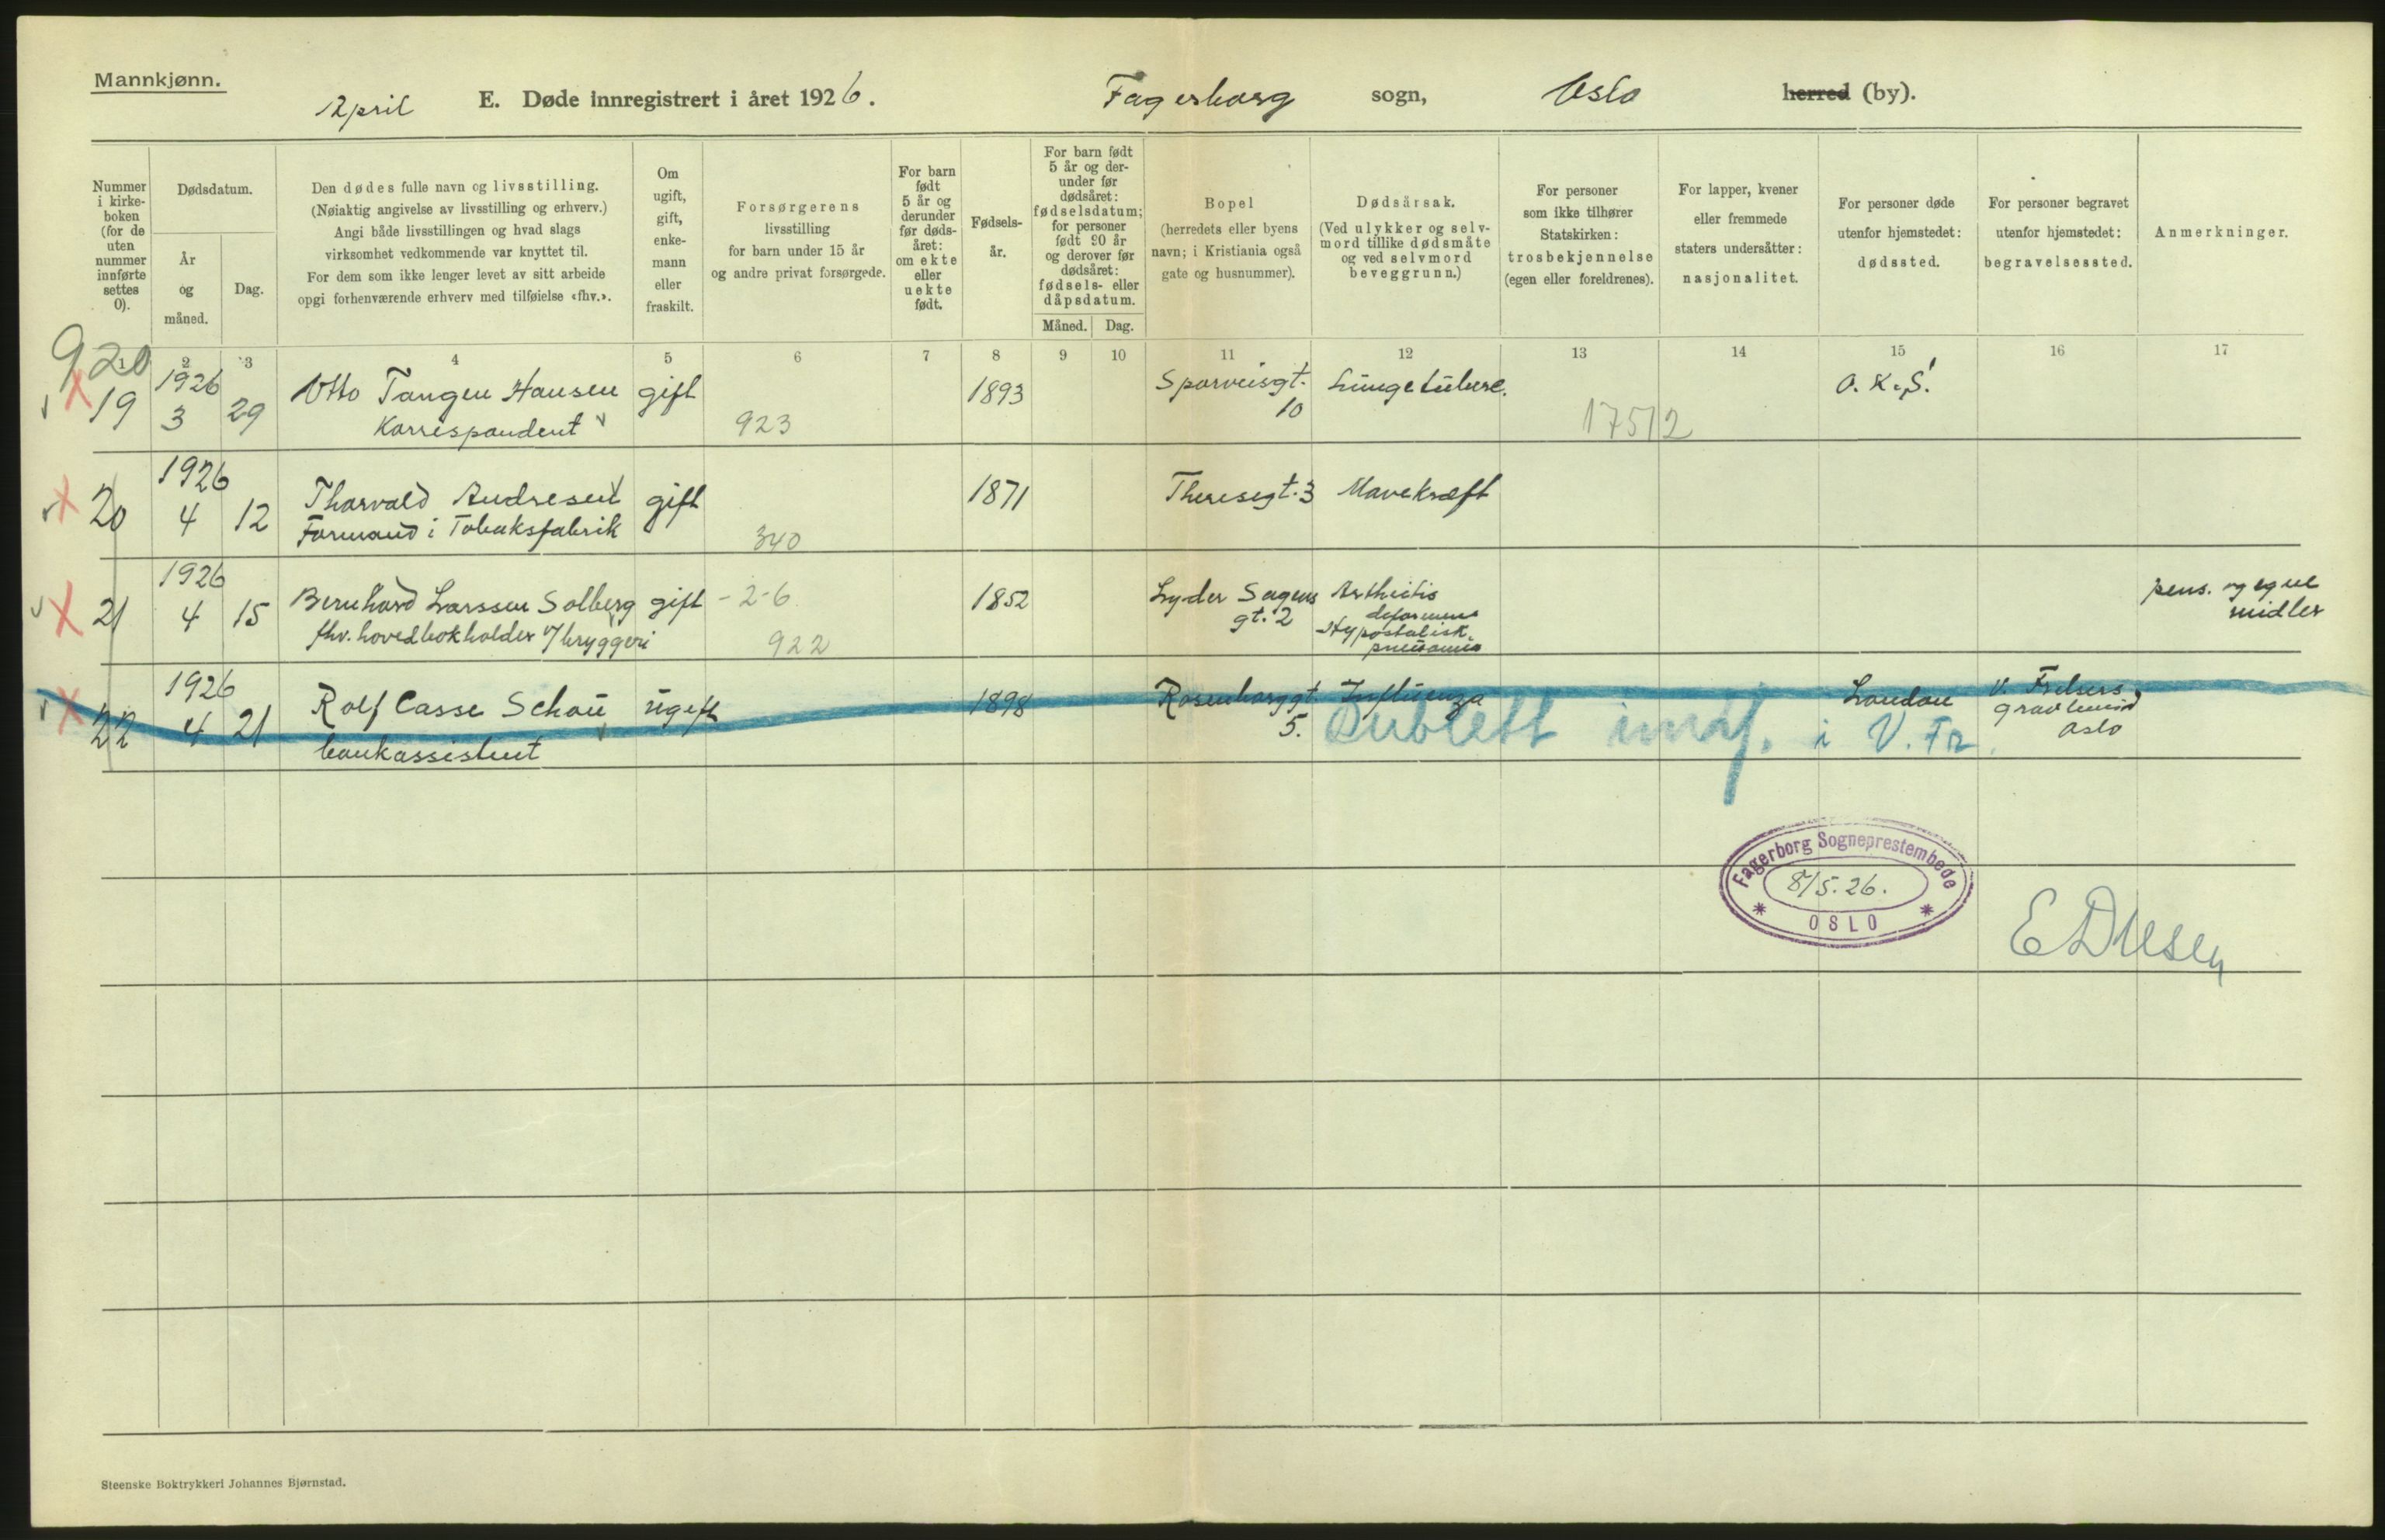 Mannkjønn.
April E. Døde innregistrert i året 1926. Fagerborg sogn, Oslo herred (by).
Nummer i kirke-boken (for de uten nummer innførte settes 0).
Dødsdatum.
År og måned.
Dag.
Den dødes fulle navn og livsstilling.
(Nøiaktig angivelse av livsstilling og erhverv.)
Angi både livsstillingen og hvad slags
virksomhet vedkommende var knyttet til.
For dem som ikke lenger levet av sitt arbeide
opgi forhenværende erhverv med tilføielse «fhv.».
Om ugift, gift, enke-mann eller fraskilt.
Forsørgerens
livsstilling
for barn under 15 år
og andre privat forsørgede.
For barn født 5 år og derunder før døds-året: om ekte eller uekte født.
Fødsels-år.
For barn født 5 år og der-under før dødsåret: fødselsdatum; for personer født 90 år og derover før dødsåret: fødsels- eller dåpsdatum.
Måned. Dag.
Bopel
(herredets eller byens
navn; i Kristiania også
gate og husnummer).
Dødsårsak.
(Ved ulykker og selv-
mord tillike dødsmåte
og ved selvmord
beveggrunn.)
For personer
som ikke tilhører
Statskirken:
trosbekjennelse
(egen eller foreldrenes).
For lapper, kvener
eller fremmede
staters undersåtter:
nasjonalitet.
For personer døde
utenfor hjemstedet:
dødssted.
For personer begravet
utenfor hjemstedet:
begravelsessted.
Anmerkninger.
1 2 3 4 5 6 7 8 9 10 11 12 13 14 15 16 17
920
19 1926 3 29 Otto Tangen Hansen gift 1893 Sporveisgt. 10 Lungetuberc. O.K.S.
Korrespondent 923 17512
20 1926 4 12 Thorvald Andresen gift 1871 Theresegt. 3 Mavekræft
Formand i Tobaksfabrik 340
21 1926 4 15 Bernhard Larssen Solberg gift - 2-6 1852 Lyder Sagens gt. 2 Arthritis deformans Hypostatisk. pneumoni pens. og egne midler
fhv. hovedbokholder v/ bryggeri 922
22 1926 4 21 Rolf Casse Schou ugift 1898 Rosenborggt 5. Influenza London V. Frelsers gravlund Oslo
bankassistent
Dublett innf. i V. Fr.
Fagerborg Sogneprestembede
8/5.26.
OSLO
Steenske Boktrykkeri Johannes Bjørnstad.